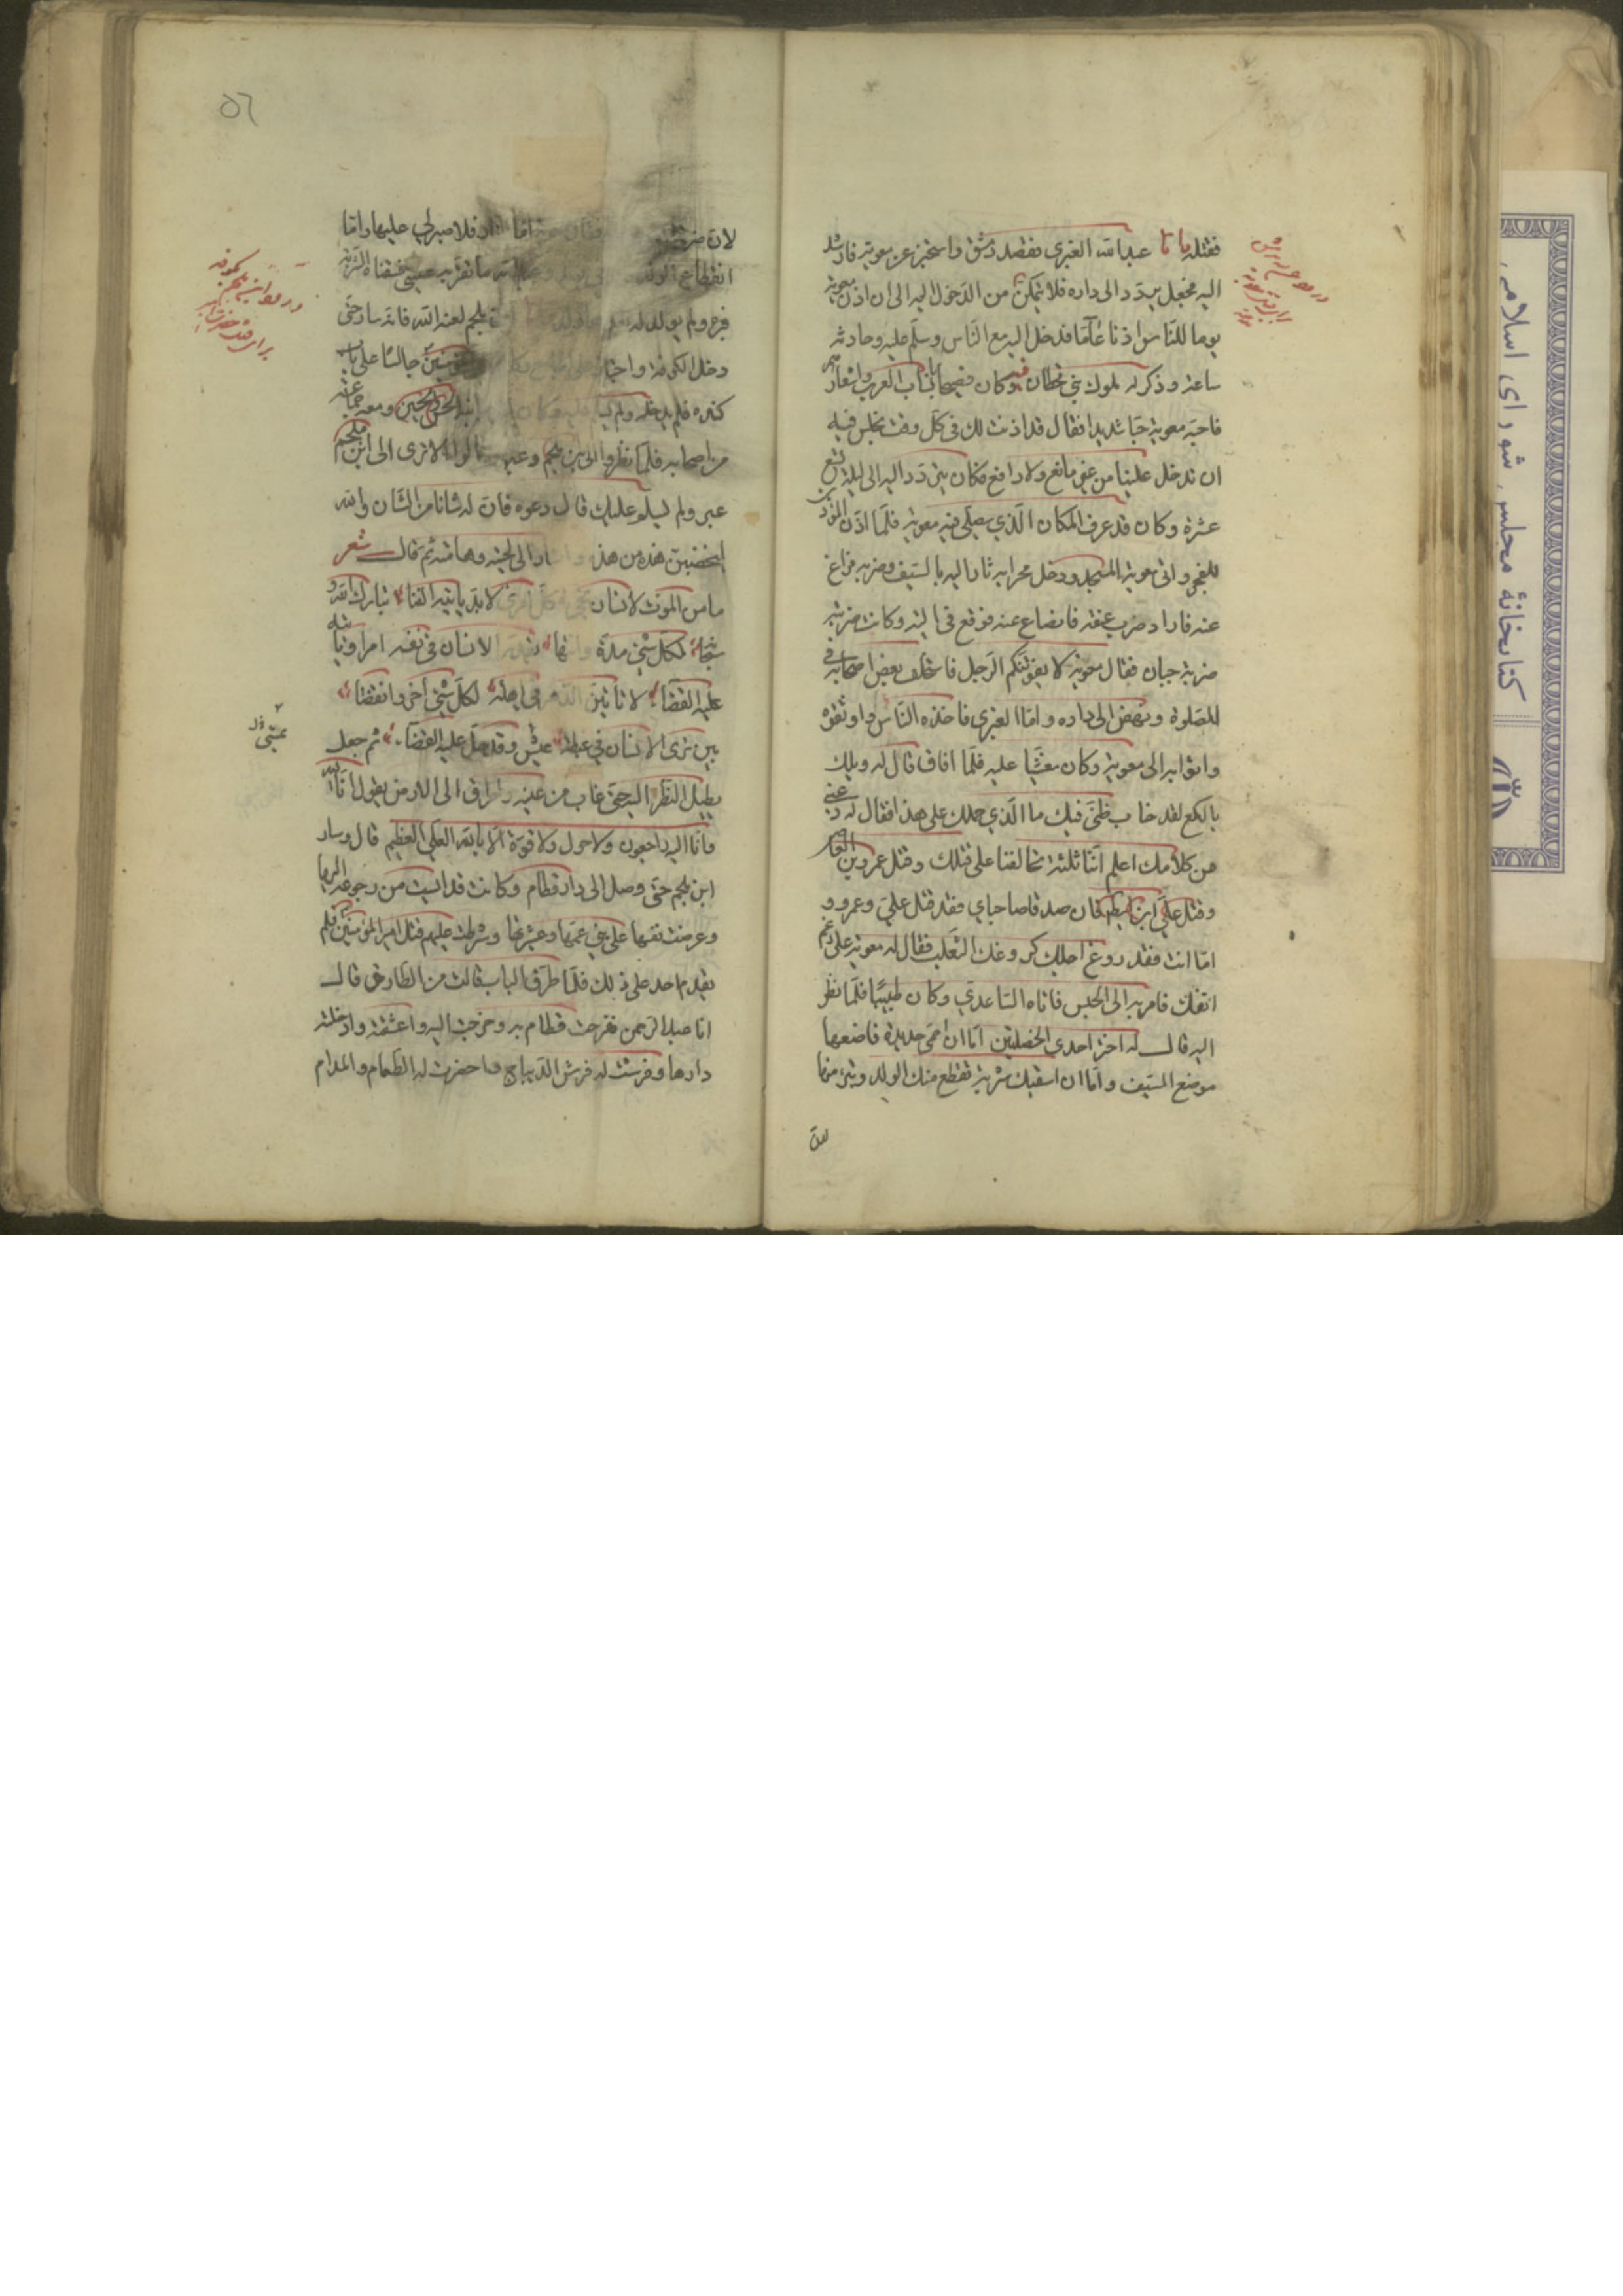 فقتله واما عبد الله العنبري فقصد دمشق واستخبر عن معوية فارشد
اليه فجعل يتردد الى داره فلا يتمكن من الدخول اليه الى ان اذن معوية
يوما للناس اذنا عاما فدخل اليه مع الناس وسلم عليه وحادثه
ساعة وذكر له ملوك بني قحطان وكان فصيحا بانساب العرب واشعارهم
فاحبه معوية حبا شديدا فقال قد اذنت لك في كل وقت نجلس فيه
ان تدخل علينا من غير مانع ولا دافع فكان يتردد اليه الى ليلة تسع
عشرة وكان قد عرف المكان الذي يصلي فيه معوية فلما اذن المؤذن
للفجر واتى معوية المسجد ودخل محرابه ثار اليه بالسيف وضربه فراغ
عنه فاراد ضرب عنقه فانصاع عنه فوقع في اليته وكانت ضربته
ضربة جبان فقال معوية لا يفوتنكم الرجل فاستخلف بعض اصحابه في
للصلوة ونهض الى داره واما العنبري فاخذه الناس واوثقوه
واتوا به الى معوية وكان مغشيا عليه فلما افاق قال له ويلك
يا لكع لقد خاب ظني فيك ما الذي حملك على هذا فقال له دعني
من كلامك اعلم اننا ثلثة تحالفنا على قتلك وقتل عمرو بن العاص
وقتل علي ابن ابيطالب فان صدقا صاحباي فقد قتل علي وعمرو و
اما انت فقد روغ اجلك كروغك الثعلب فقال له معوية على رغم
انفك فامر به الى الحبس فاتاه الساعدي وكان طبيبا فلما نظر
اليه قال له اختر احدى الخصلتين اما ان احمي حديدة فاضعها
موضع السيف واما ان اسقيك شربة تقطع منك الولد وتبرء منها
لان
٥٦
لان ضربتك فقال معوية اما النار فلا صبر لي عليها واما
انقطاع الولد ما تقر به عيني فسقاه الشربة
فبرء ولم يولد له ملجم لعنه الله فانه سار حتى
دخل الكوفة واجتاز جالسا على باب
كندة فلم يدخله ولم الحسن والحسين ومعه جماعة
من اصحابه فلما نظروا الى ابن ملجم وعبر قالوا الا ترى الى ابن ملجم
عبر ولم يسلم عليك قال دعوه فان له شانا من الشان والله
ليخضبن هذه من هذه واشار الى لحيته وهامته ثم قال شعر
ما من الموت لانسان نجاء كل امرئ لا بد ياتيه الفنا تبارك الله و
سبحانه لكل شيء مدة وانتهاء يقدر الانسان في نفسه امرا وياتيه
عليه القضا لا تامنن الدهر في اهله لكل شيء آخر وانقضا
بين ترى الانسان في غبطة عيش وقد حل عليه القضاء ثم جعل
يطيل النظر اليه حتى غاب من عينه واطرق الى الارض يقول انا لله
وانا اليه راجعون ولا حول ولا قوة الا بالله العلي العظيم قال وسار
ابن ملجم حتى وصل الى دار قطام وكانت قد ايست من رجوعه اليها
وعرضت نفسها على بني عمها وعشيرتها وشرطت عليهم قتل امير المؤمنين فلم
يقدم احد على ذلك فلما طرق الباب قالت من الطارق قال
انا عبد الرحمن ففرحت قطام به وخرجت اليه واعتنقته وادخلته
دارها وفرشت له فرش الديباج واحضرت له الطعام والمدام
كتابخانه مجلس شورای اسلامی